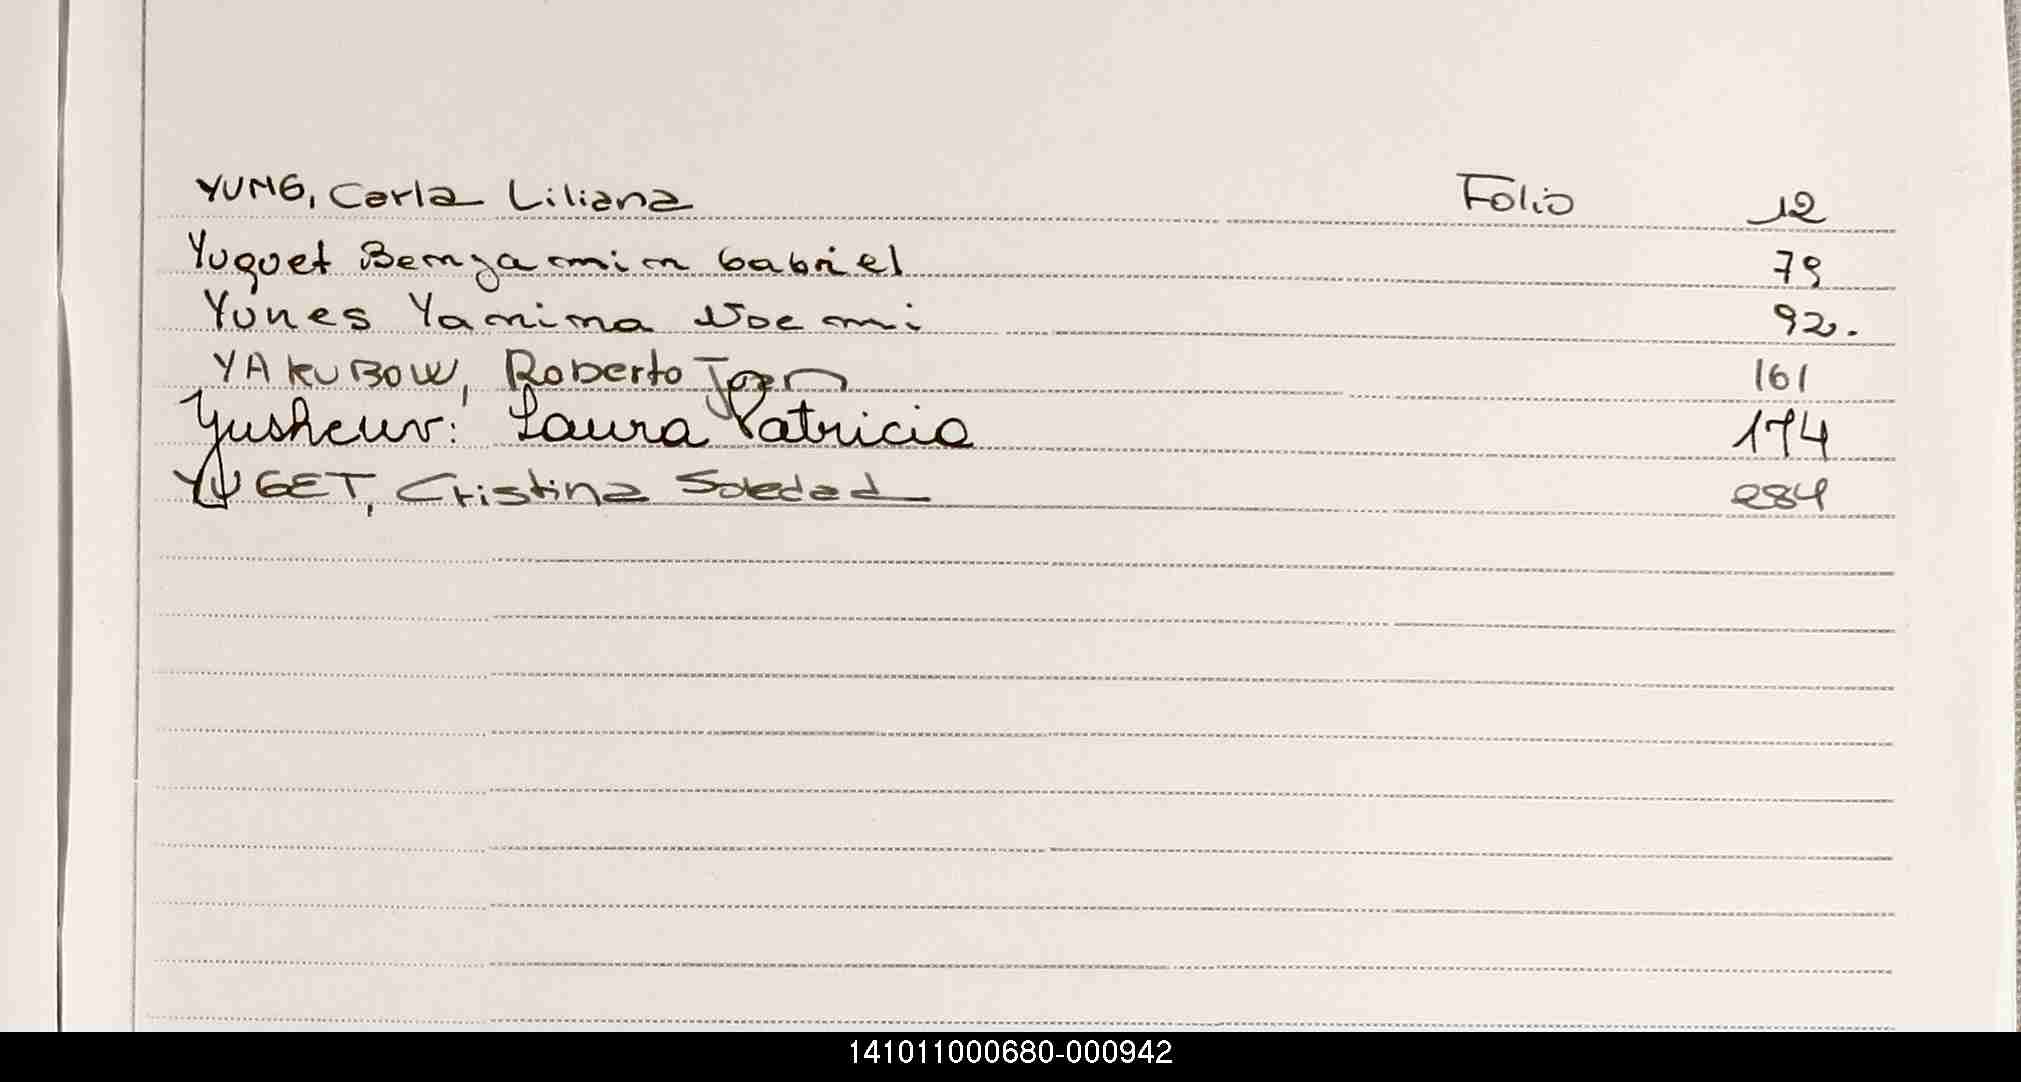 YUNG, Carla Liliana Folio 12
Yuquet Benyamin Gabriel 79
Yunes Yamina Noemi 92.
YAKUBOW, Roberto 161
Laura Patricia 174
YUGET, Cristina Soledad 284
141011000680-000942